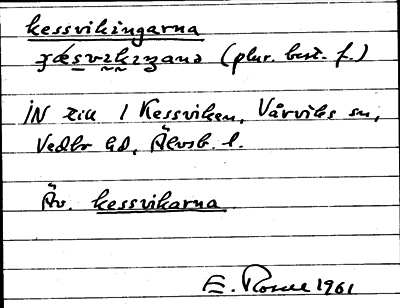 kessvikingarna
(plur. best. f.)
IN till 1 Kessviken, Vårviks sn,
Vedbo hd, Älvsb. l.
Äv. kessvikarna
E. 1961